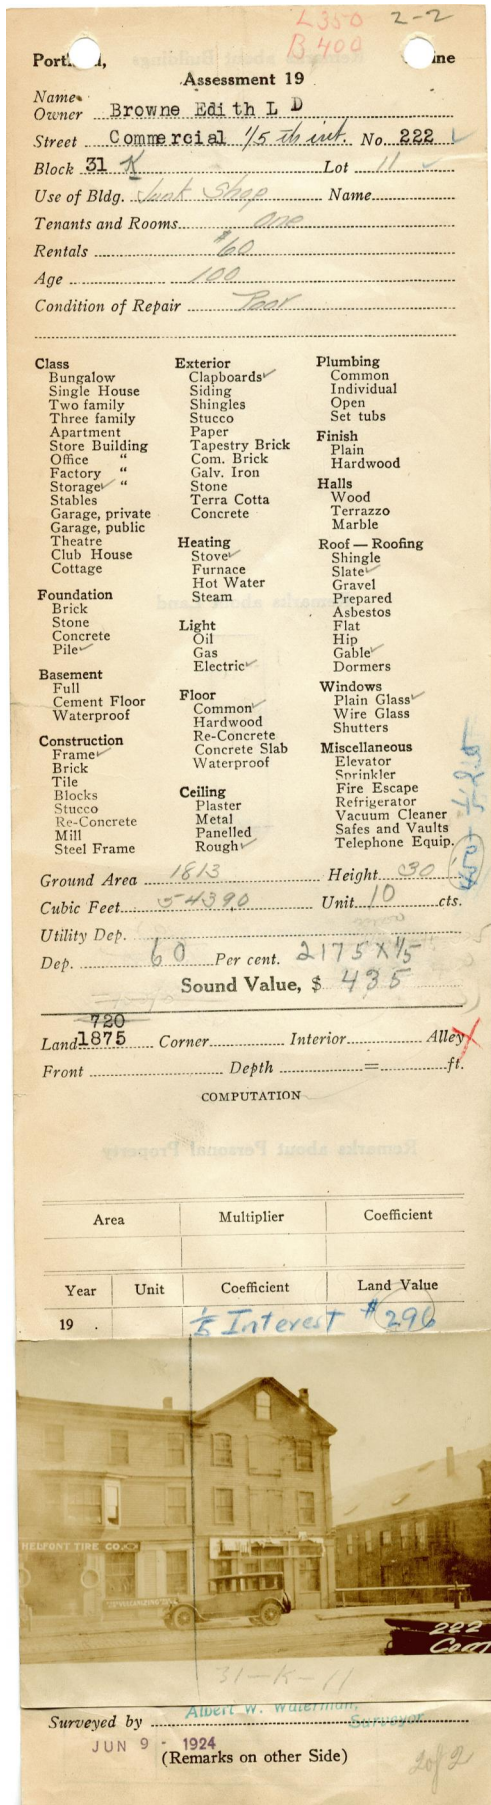 L 350 2-2
B 400
Port d, ine
Assessment 19
Name
Owner Browne Edith L D
Street Commercial 1/5 th int. No. 222
Block 31 K Lot 11
Use of Bldg. Junk Shop Name
Tenants and Rooms one
Rentals $60
Age 100
Condition of Repair Poor
Class
Bungalow
Single House
Two family
Three family
Apartment
Store Building
Office "
Factory "
Storage ✓ "
Stables
Garage, private
Garage, public
Theatre
Club House
Cottage
Foundation
Brick
Stone
Concrete
Pile ✓
Basement
Full
Cement Floor
Waterproof
Construction
Frame ✓
Brick
Tile
Blocks
Stucco
Re-Concrete
Mill
Steel Frame
Exterior
Clapboards ✓
Siding
Shingles
Stucco
Paper
Tapestry Brick
Com. Brick
Galv. Iron
Stone
Terra Cotta
Concrete
Heating
Stove ✓
Furnace
Hot Water
Steam
Light
Oil
Gas
Electric ✓
Floor
Common ✓
Hardwood
Re-Concrete
Concrete Slab
Waterproof
Ceiling
Plaster
Metal
Panelled
Rough ✓
Plumbing
Common
Individual
Open
Set tubs
Finish
Plain
Hardwood
Halls
Wood
Terrazzo
Marble
Roof — Roofing
Shingle
Slate ✓
Gravel
Prepared
Asbestos
Flat
Hip
Gable ✓
Dormers
Windows
Plain Glass ✓
Wire Glass
Shutters
Miscellaneous
Elevator
Sprinkler
Fire Escape
Refrigerator
Vacuum Cleaner
Safes and Vaults
Telephone Equip.
Ground Area 1813 Height 30
Cubic Feet 54390 Unit 10 cts.
Utility Dep.
Dep. 60 Per cent. 2175 X 1/5
Sound Value, $ 435
720
Land 1875 Corner Interior Alley X
Front Depth = ft.
COMPUTATION
Area Multiplier Coefficient
Year Unit Coefficient Land Value
19 . 1/5 Interest $296
HELFONT TIRE CO.
VULCANIZING
222
Com
31-K-11
Surveyed by Albert W. Waterman,
Surveyor
JUN 9 - 1924
(Remarks on other Side)
2 of 2